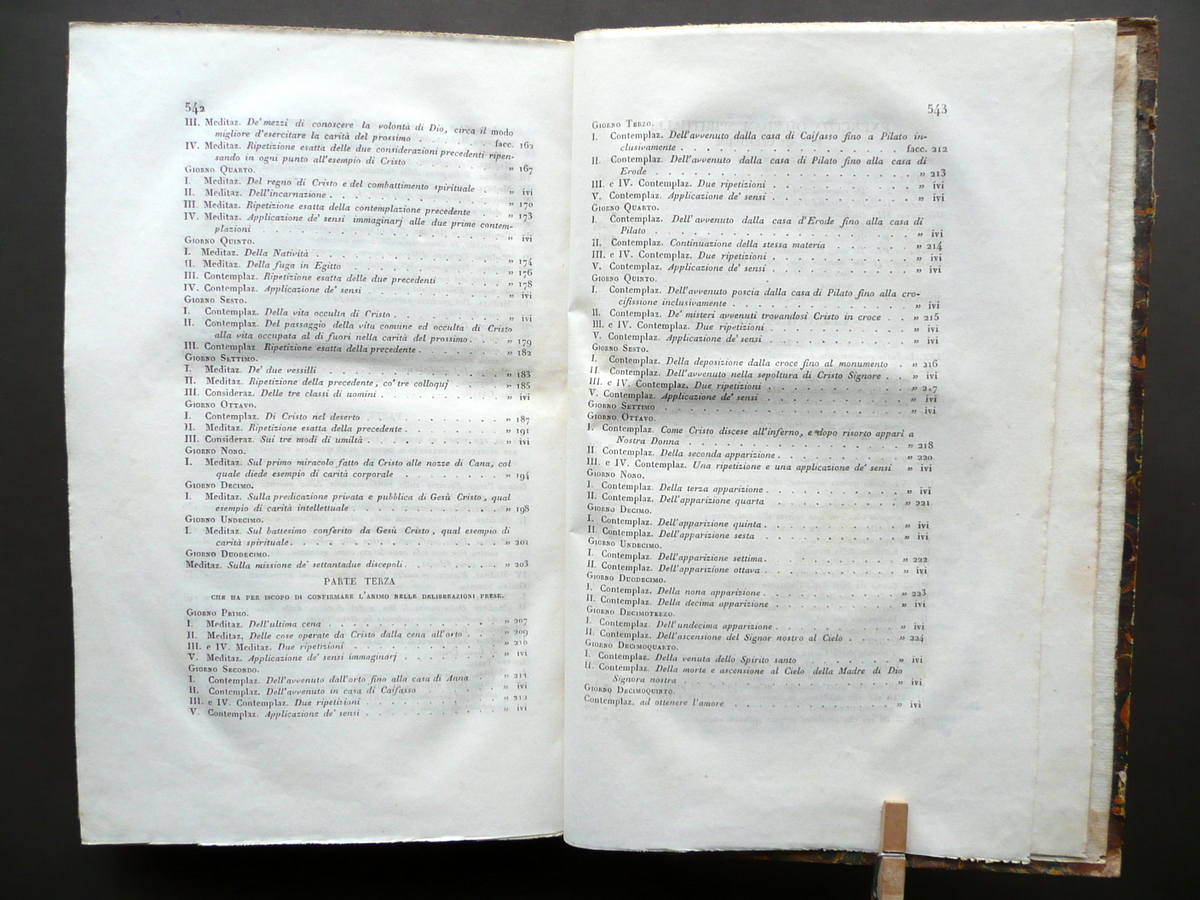 542
III. Meditaz. De' mezzi di conoscere la volontà di Dio, circa il modo
migliore d'esercitare la carità del prossimo . . . . . facc. 162
IV. Meditaz. Ripetizione esatta delle due considerazioni precedenti ripen-
sando in ogni punto all'esempio di Cristo . . . . . » 167
GIORNO QUARTO.
I. Meditaz. Del regno di Cristo e del combattimento spirituale . . » ivi
II. Meditaz. Dell'incarnazione . . . . . » 170
III. Meditaz. Ripetizione esatta della contemplazione precedente . . » 173
IV. Meditaz. Applicazione de' sensi immaginarj alle due prime contem-
plazioni . . . . . » ivi
GIORNO QUINTO.
I. Meditaz. Della Natività . . . . . » 174
II. Meditaz. Della fuga in Egitto . . . . . » 176
III. Contemplaz. Ripetizione esatta delle due precedenti . . . . . » 178
IV. Contemplaz. Applicazione de' sensi . . . . . » ivi
GIORNO SESTO.
I. Contemplaz. Della vita occulta di Cristo . . . . . » ivi
II. Contemplaz. Del passaggio della vita comune ed occulta di Cristo
alla vita occupata al di fuori nella carità del prossimo . . . » 179
III. Contemplaz. Ripetizione esatta della precedente . . . . . » 182
GIORNO SETTIMO.
I. Meditaz. De' due vessilli . . . . . » 183
II. Meditaz. Ripetizione della precedente, co' tre colloquj . . . . » 185
III. Consideraz. Delle tre classi di uomini . . . . . » ivi
GIORNO OTTAVO.
I. Contemplaz. Di Cristo nel deserto . . . . . » 187
II. Meditaz. Ripetizione esatta della precedente . . . . . » 191
III. Consideraz. Sui tre modi di umiltà . . . . . » ivi
GIORNO NONO.
I. Meditaz. Sul primo miracolo fatto da Cristo alle nozze di Cana, col
quale diede esempio di carità corporale . . . . . » 194
GIORNO DECIMO.
I. Meditaz. Sulla predicazione privata e pubblica di Gesù Cristo, qual
esempio di carità intellettuale . . . . . » 198
GIORNO UNDECIMO.
I. Meditaz. Sul battesimo conferito da Gesù Cristo, qual esempio di
carità spirituale . . . . . » 201
GIORNO DUODECIMO.
Meditaz. Sulla missione de' settantadue discepoli . . . . . » 203
PARTE TERZA
CHE HA PER ISCOPO DI CONFIRMARE L'ANIMO NELLE DELIBERAZIONI PRESE.
GIORNO PRIMO.
I. Meditaz. Dell'ultima cena . . . . . » 207
II. Meditaz. Delle cose operate da Cristo dalla cena all'orto . . . » 209
III. e IV. Meditaz. Due ripetizioni . . . . . » 210
V. Meditaz. Applicazione de' sensi immaginarj . . . . . » ivi
GIORNO SECONDO.
I. Contemplaz. Dell'avvenuto dall'orto fino alla casa di Anna . . » 211
II. Contemplaz. Dell'avvenuto in casa di Caifasso . . . . . » ivi
III. e IV. Contemplaz. Due ripetizioni . . . . . » 212
V. Contemplaz. Applicazione de' sensi . . . . . » ivi
543
GIORNO TERZO.
I. Contemplaz. Dell'avvenuto dalla casa di Caifasso fino a Pilato in-
clusivamente . . . . . facc. 212
II. Contemplaz. Dell'avvenuto dalla casa di Pilato fino alla casa di
Erode . . . . . » 213
III. e IV. Contemplaz. Due ripetizioni . . . . . » ivi
V. Contemplaz. Applicazione de' sensi . . . . . » ivi
GIORNO QUARTO.
I. Contemplaz. Dell'avvenuto dalla casa d'Erode fino alla casa di
Pilato . . . . . » ivi
II. Contemplaz. Continuazione della stessa materia . . . . . » 214
III. e IV. Contemplaz. Due ripetizioni . . . . . » ivi
V. Contemplaz. Applicazione de' sensi . . . . . » ivi
GIORNO QUINTO.
I. Contemplaz. Dell'avvenuto poscia dalla casa di Pilato fino alla cro-
cifissione inclusivamente . . . . . » ivi
II. Contemplaz. De' misteri avvenuti trovandosi Cristo in croce . . » 215
III. e IV. Contemplaz. Due ripetizioni . . . . . » ivi
V. Contemplaz. Applicazione de' sensi . . . . . » ivi
GIORNO SESTO.
I. Contemplaz. Della deposizione dalla croce fino al monumento . . » 216
II. Contemplaz. Dell'avvenuto nella sepoltura di Cristo Signore . . » ivi
III. e IV. Contemplaz. Due ripetizioni . . . . . » 217
V. Contemplaz. Applicazione de' sensi . . . . . » ivi
GIORNO SETTIMO . . . . . » ivi
GIORNO OTTAVO.
I. Contemplaz. Come Cristo discese all'inferno, e dopo risorto appari a
Nostra Donna . . . . . » 218
II. Contemplaz. Della seconda apparizione . . . . . » 220
III. e IV. Contemplaz. Una ripetizione e una applicazione de' sensi » ivi
GIORNO NONO.
I. Contemplaz. Della terza apparizione . . . . . » ivi
II. Contemplaz. Dell'apparizione quarta . . . . . » 221
GIORNO DECIMO.
I. Contemplaz. Dell'apparizione quinta . . . . . » ivi
II. Contemplaz. Dell'apparizione sesta . . . . . » ivi
GIORNO UNDECIMO.
I. Contemplaz. Dell'apparizione settima . . . . . » 222
II. Contemplaz. Dell'apparizione ottava . . . . . » ivi
GIORNO DUODECIMO.
I. Contemplaz. Della nona apparizione . . . . . » 223
II. Contemplaz. Della decima apparizione . . . . . » ivi
GIORNO DECIMOTREZO.
I. Contemplaz. Dell'undecima apparizione . . . . . » ivi
II. Contemplaz. Dell'ascensione del Signor nostro al Cielo . . . » 224
GIORNO DECIMOQUARTO.
I. Contemplaz. Della venuta dello Spirito santo . . . . . » ivi
II. Contemplaz. Della morte e ascensione al Cielo della Madre di Dio
Signora nostra . . . . . » ivi
GIORNO DECIMOQUINTO.
Contemplaz. ad ottenere l'amore . . . . . » ivi